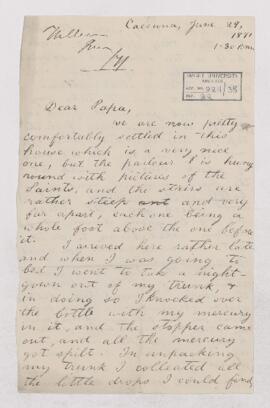 Cacouna, June 29,
1881
1.30 P.M.
William
McGILL UNIVERSITY
ARCHIVES
ACC. NO.
REF.
Dear Papa,
we are now pretty
comfortably settled in this
house which is a very nice
one, but the parlour is hung
round with pictures of the
Saints, and the stairs are
rather steep and very
far apart, each one being a
whole foot above the one before
it.
I arived here rather late
and when I was going to
bed I went to take a night-
gown out of my trunk, &
in doing so I knocked over
the bottle with my mercury
in it, and the stopper came
out, and all the mercury
got spilt. In unpacking
my trunk I colleated all
the little drops I could find,